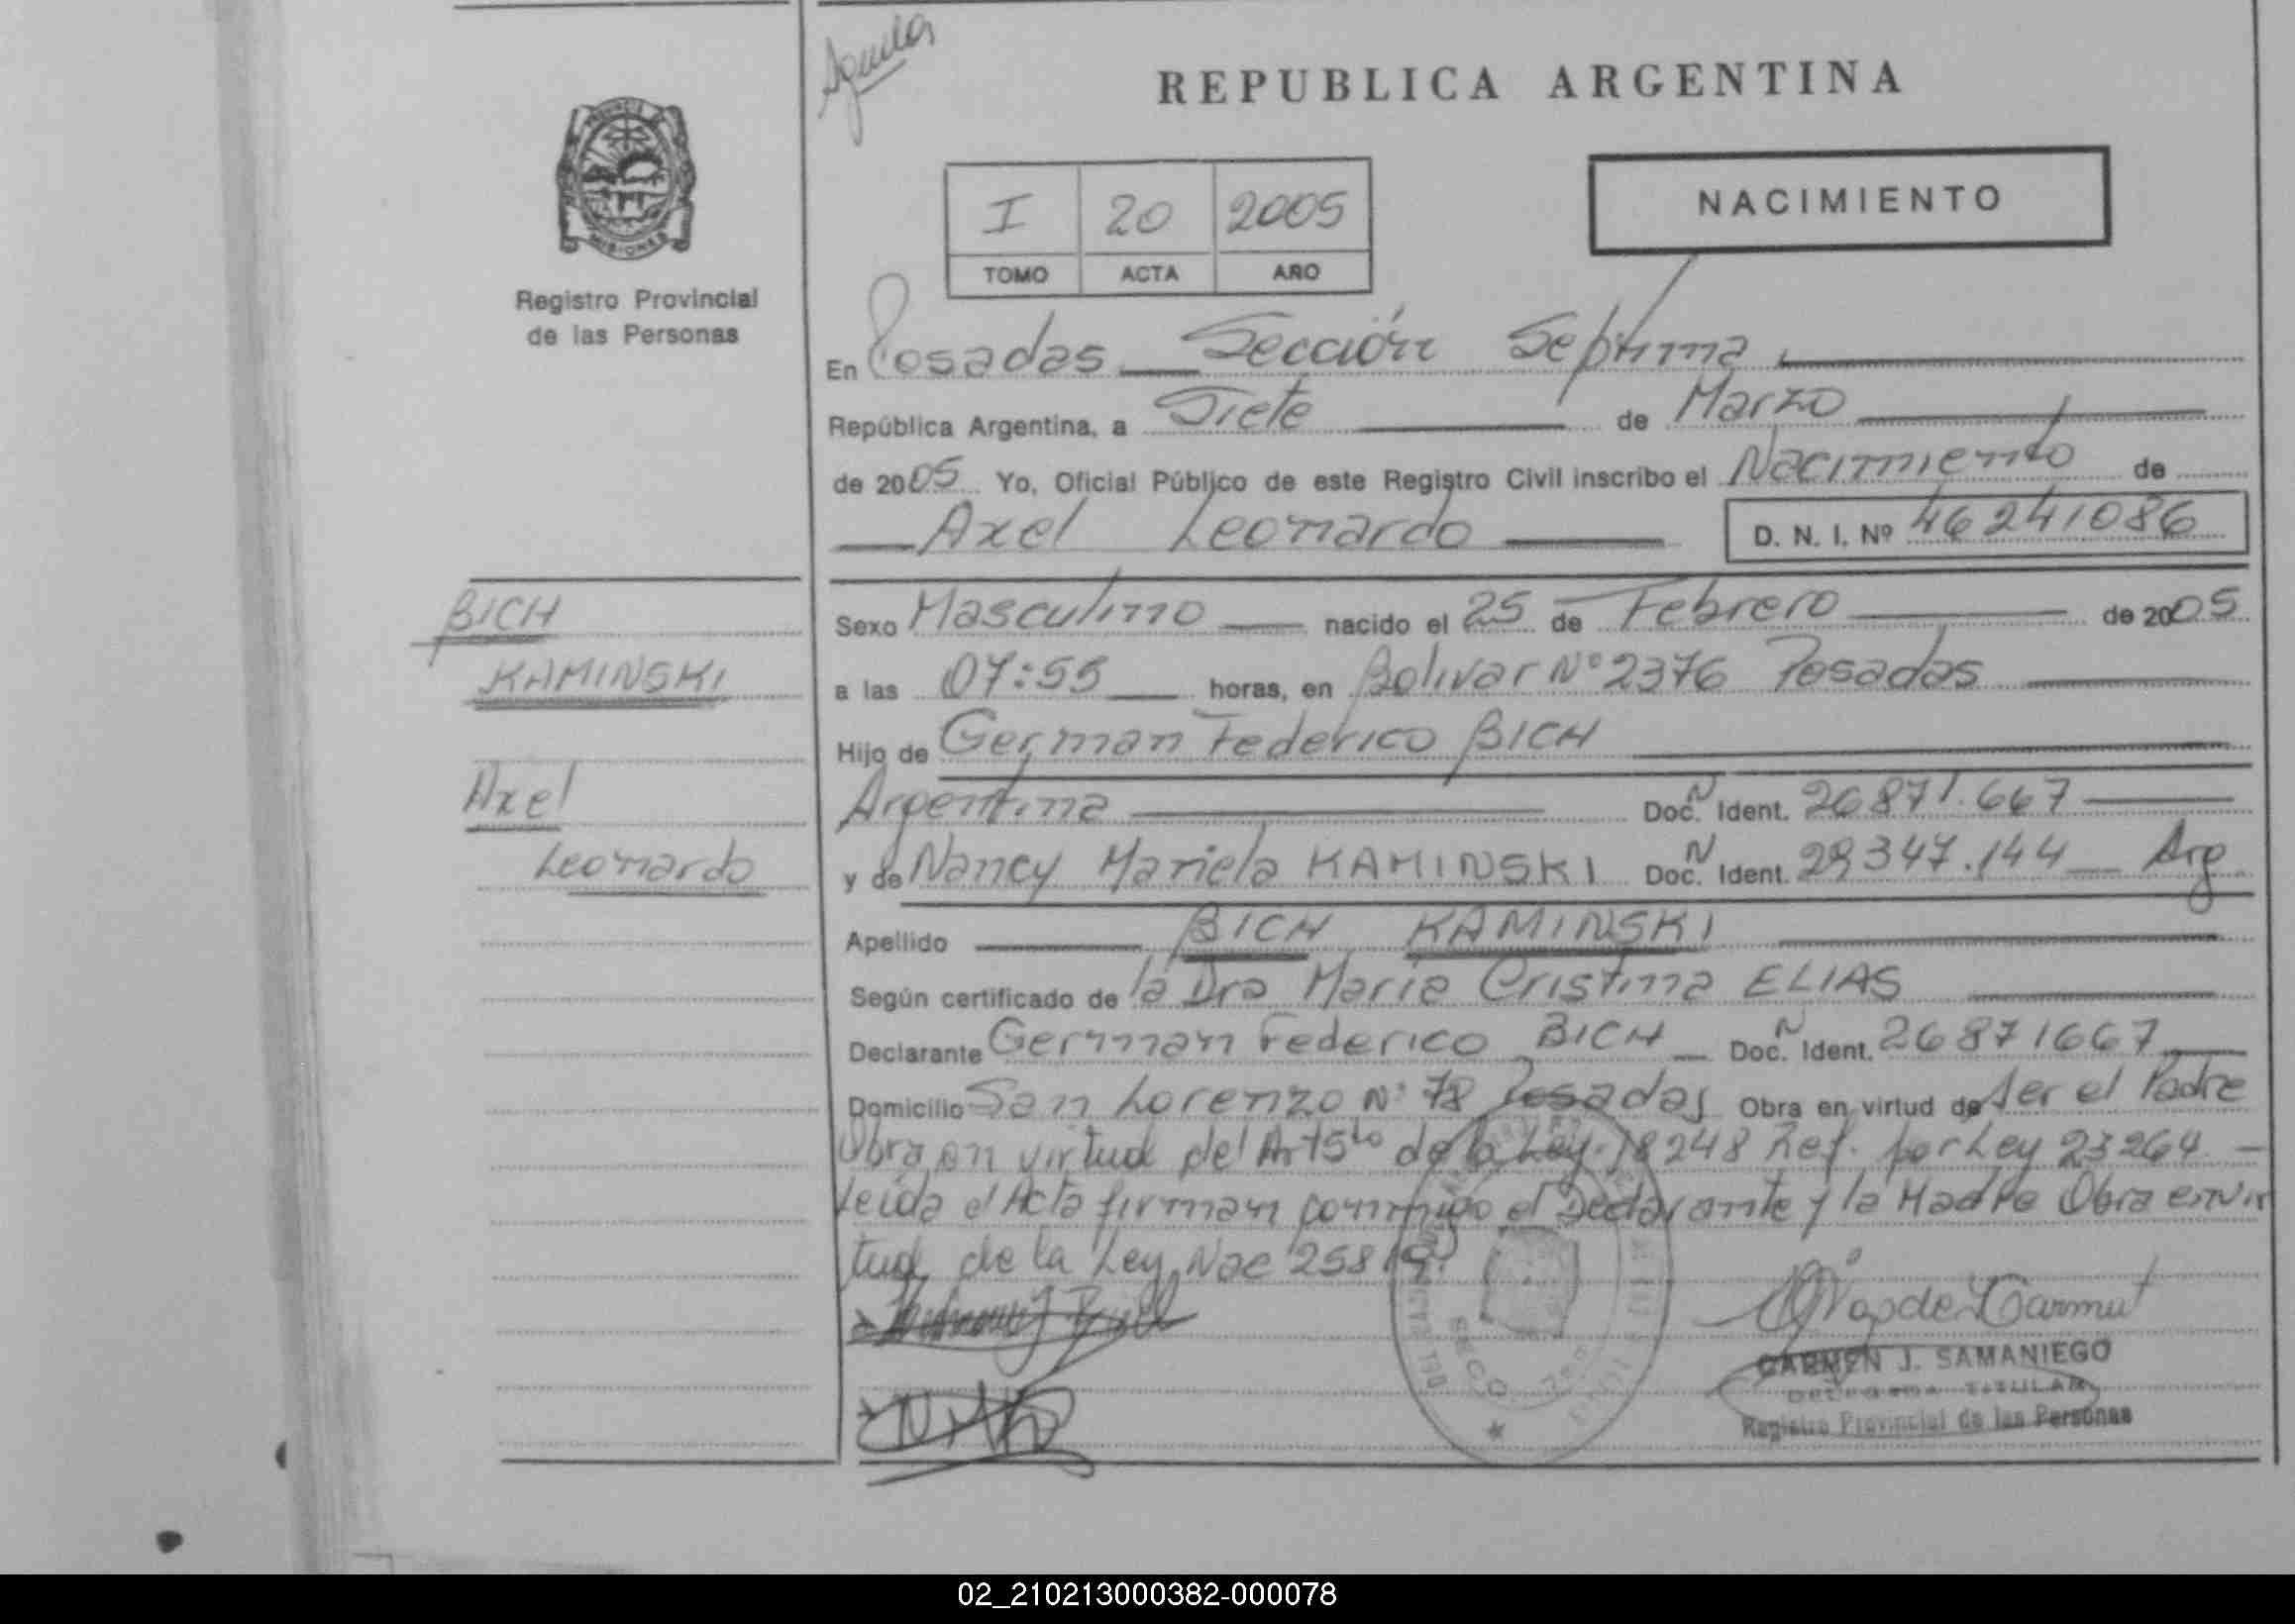 Aguilar
REPUBLICA ARGENTINA
PROVINCIA DE
MISIONES
Registro Provincial
de las Personas
I 20 2005
TOMO ACTA AÑO
NACIMIENTO
En Posadas Sección Septima
República Argentina, a Siete de Marzo
de 2005 Yo, Oficial Público de este Registro Civil inscribo el Nacimiento de
Axel Leonardo D. N. I. Nº 46241086
BICH
KAMINSKI
Axel
Leonardo
Sexo Masculino nacido el 25 de Febrero de 2005
a las 07:55 horas, en Bolivar Nº 2376 Posadas
Hijo de German Federico BICH
Argentina Doc. N Ident. 26871.667
y de Nancy Mariela KAMINSKI Doc. N Ident. 29347.144 Arg
Apellido BICH KAMINSKI
Según certificado de la Dra Maria Cristina ELIAS
Declarante German Federico BICH Doc. N Ident. 26871667
Domicilio San Lorenzo Nº 78 Posadas Obra en virtud de ser el Padre
Obra en virtud del Art 5to de la Ley 18248 Ref. por Ley 23264 -
Leida el Acta firman conmigo el Declarante y la Madre Obra en vir
tud de la Ley Nac 25819
CARMEN J. SAMANIEGO
DELEGADA TITULAR
Registro Provincial de las Personas
02_210213000382-000078